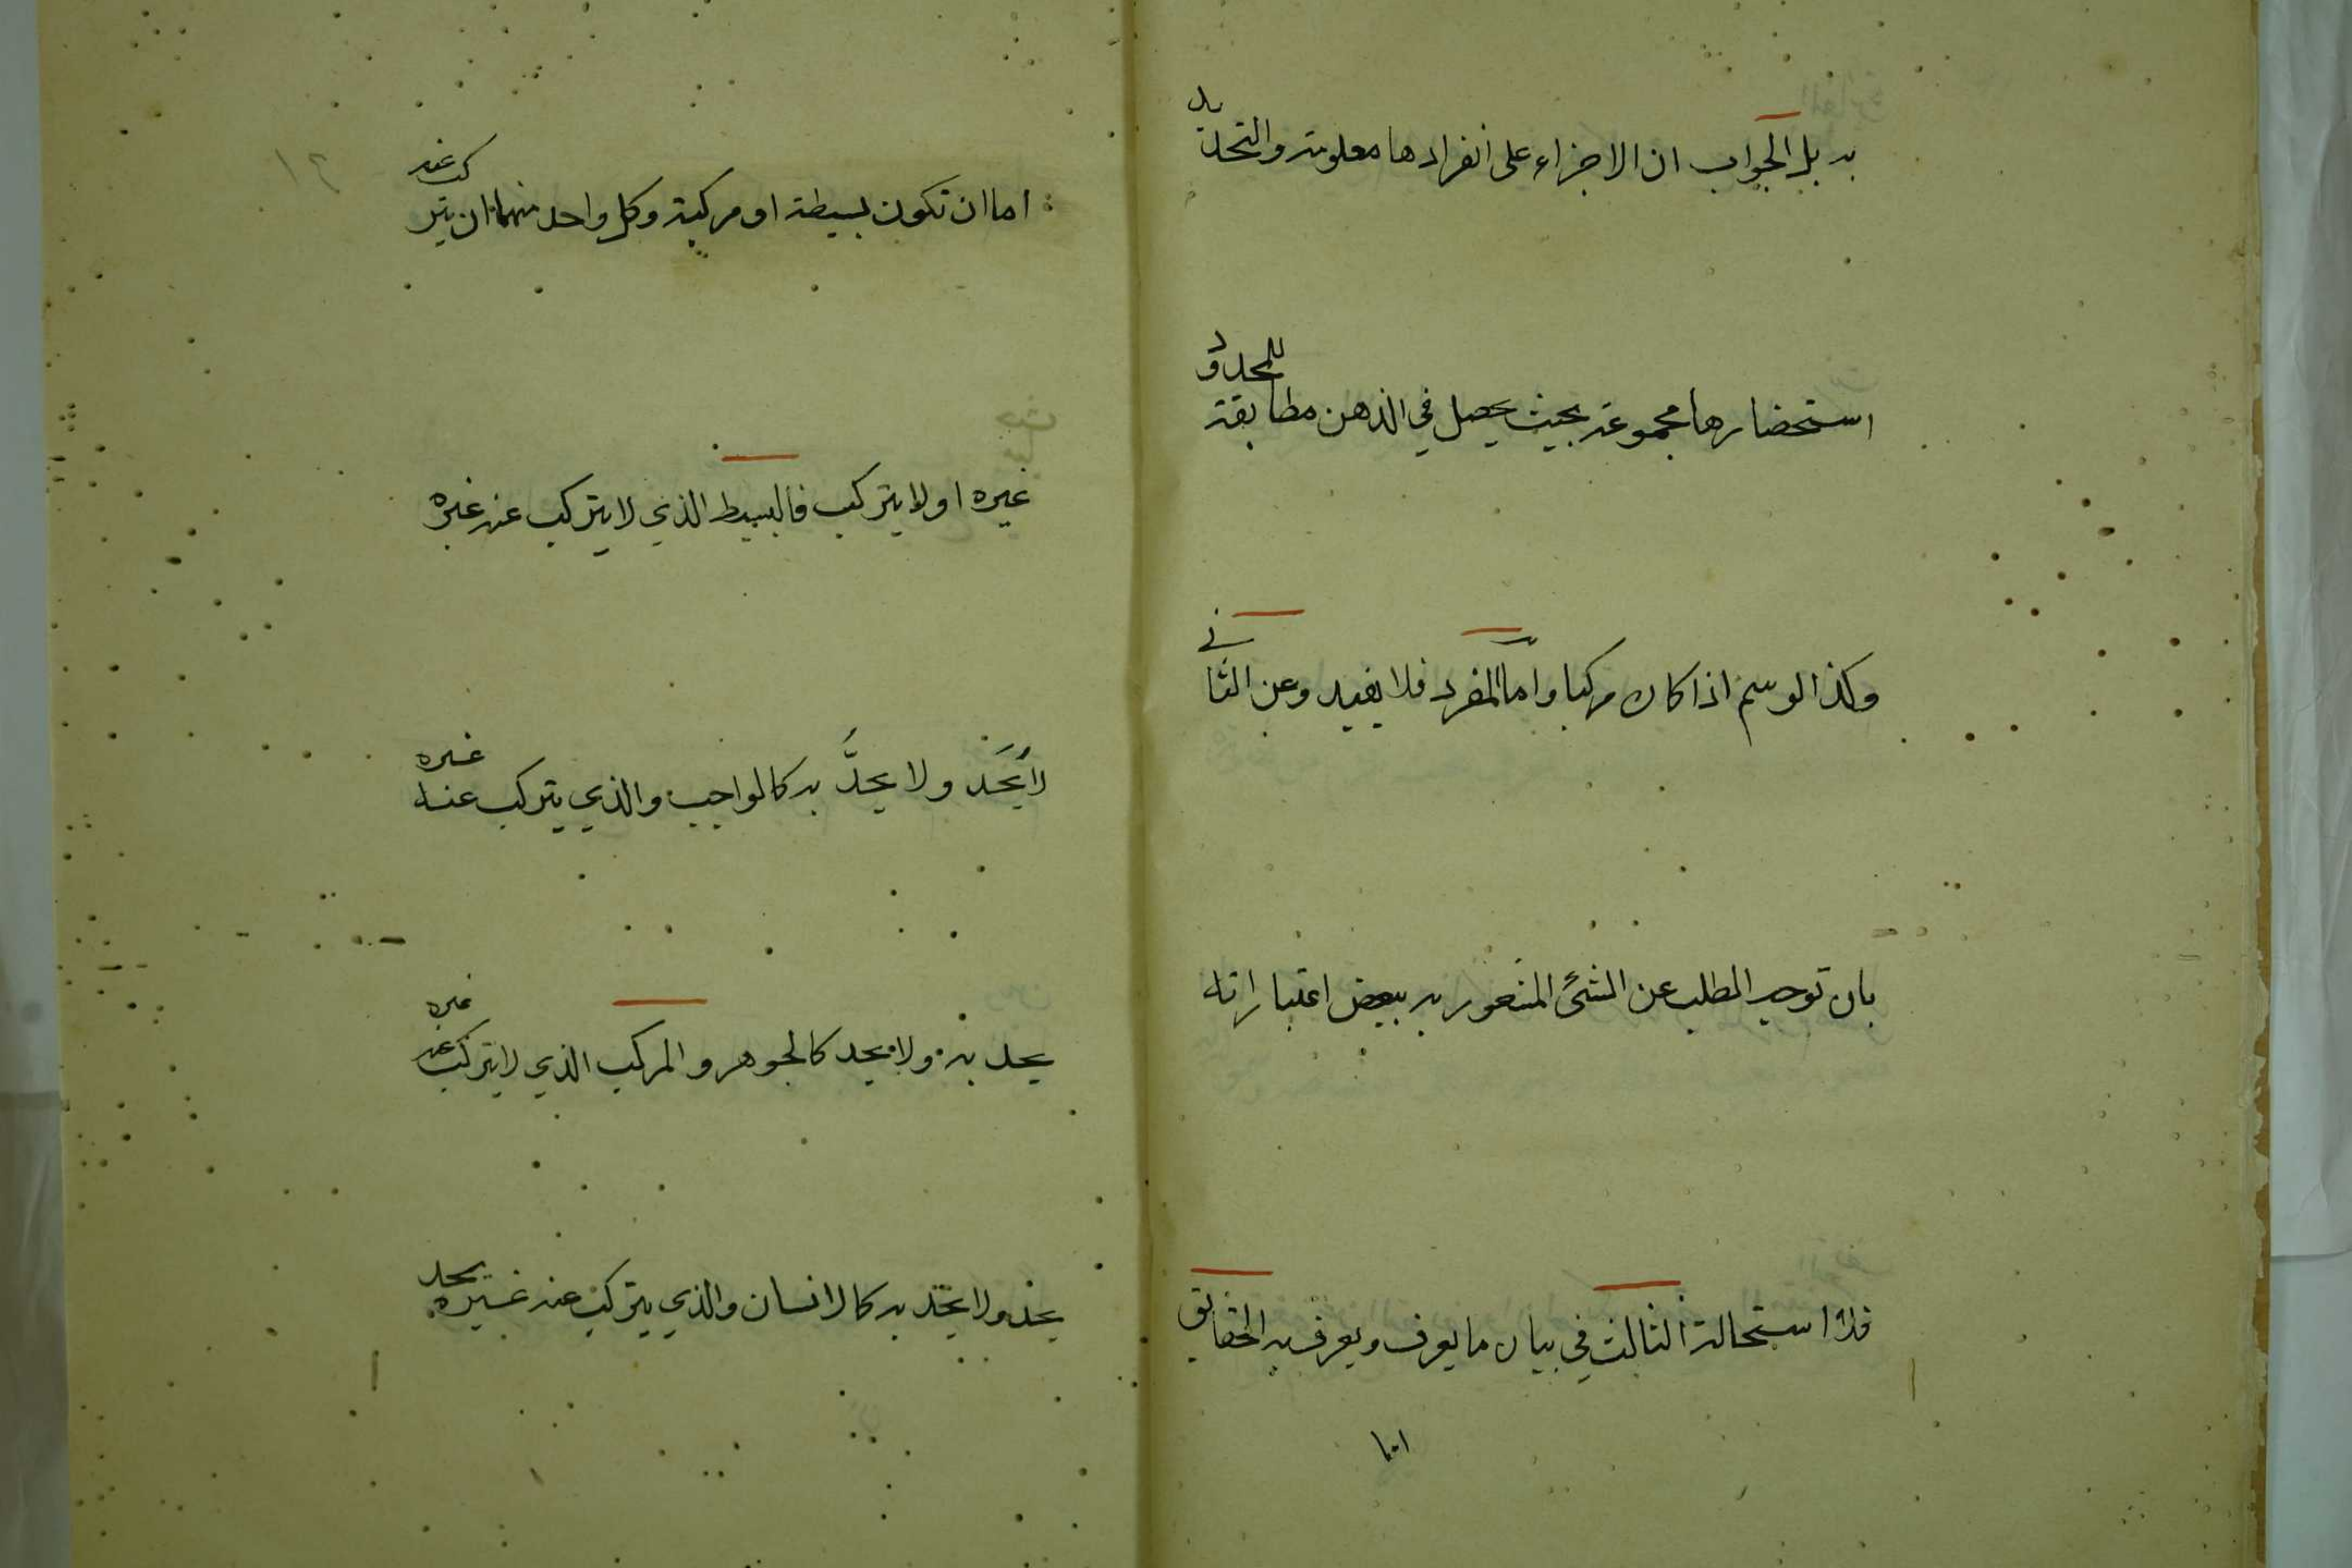 به بل الجواب ان الاجزاء على انفرادها معلومة والتحديد
استحضارها مجموعة بحيث يحصل في الذهن مطابقة للمحدود
وكذا الرسم اذا كان مركبا واما المفرد فلا يفيد وعن الثاني
بان توجيه الطلب عن الشئ المشعور به ببعض اعتباراته
فلا استحالة الثالث في بيان ما يعرف ويعرف به الحقايق
اما
اما ان تكون بسيطة او مركبة وكل واحد منهما ان يتركب عنه
غيره او لا يتركب فالبسيط الذي لا يتركب عنه غيره
لا يُحَد ولا يحدُّ به كالواجب والذي يتركب عنه غيره
يحد به ولا يحد كالجوهر والمركب الذي لا يتركب عنه غيره
يحد ولا يحد به كالانسان والذي يتركب عنه غيره يحد